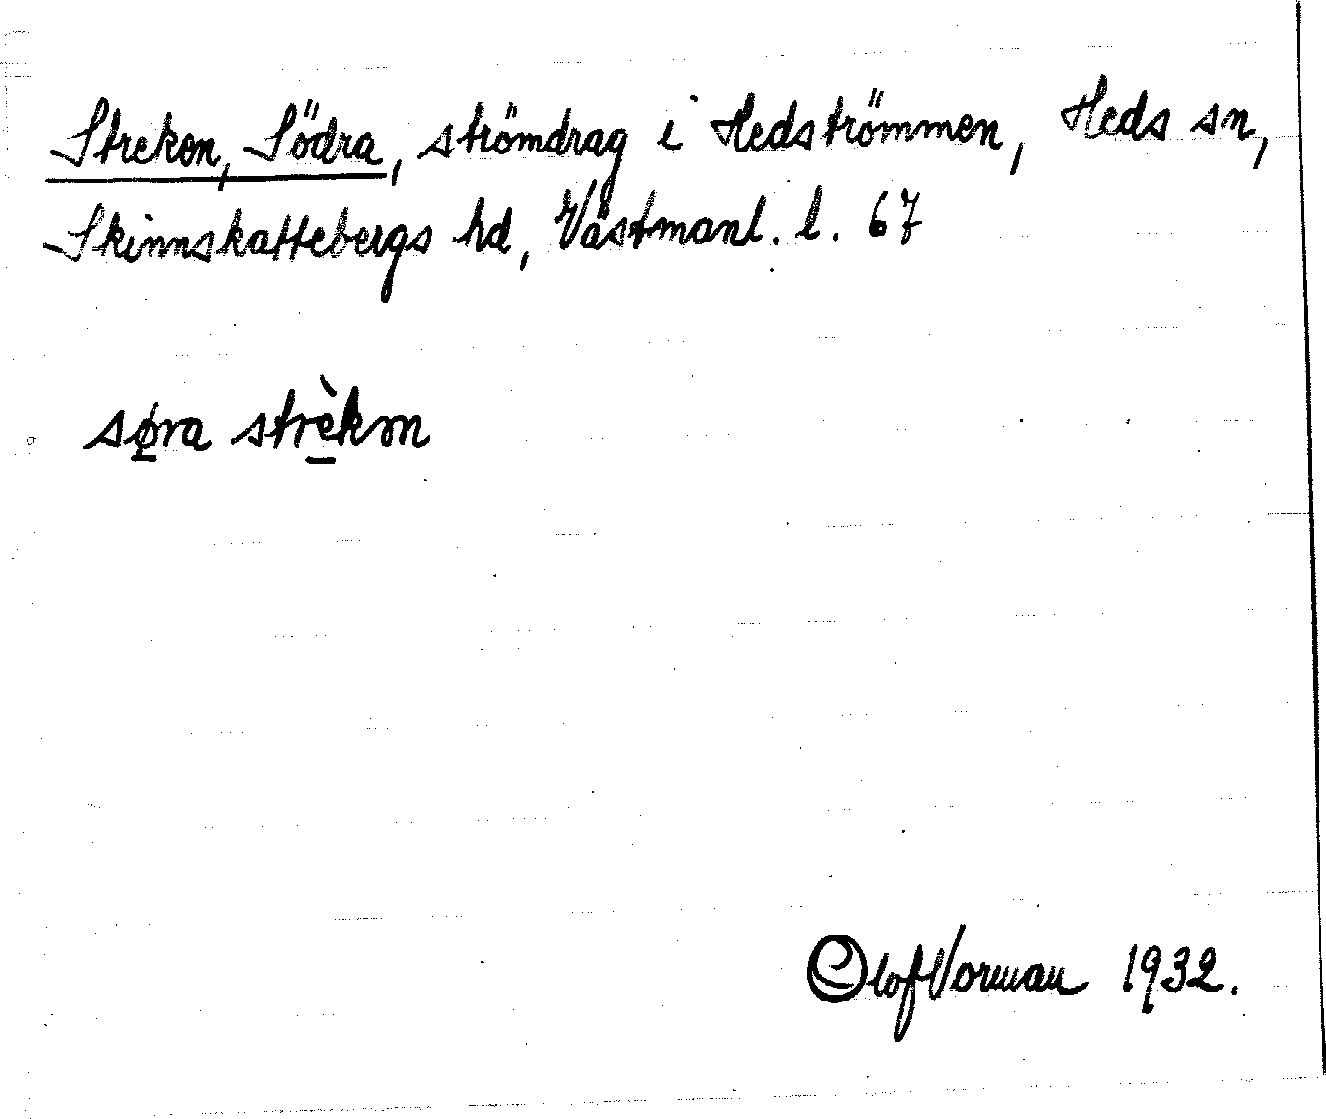 Streken, Södra, strömdrag i Hedströmmen, Heds sn,
Skinnskattebergs hd, Västmanl. l. 67
sø̲ra strè̲km
Olof Vorman 1932.